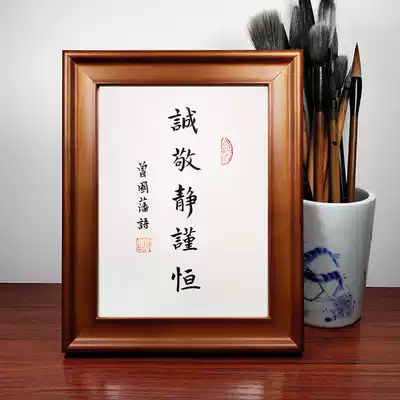 誠敬静謹恒
曾國藩語